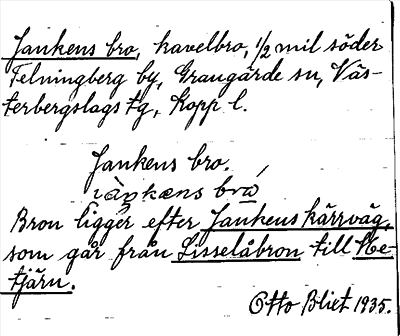 Jankens bro, kavelbro, 1/2 mil söder
Felningberg by, Grangärde sn, Väs-
terbergslags tg, Kopp l.
Jankens bro.
Bron ligger efter Jankens kärrväg,
som går från Lisselåbron till
tjärn.
Otto Blixt 1935.